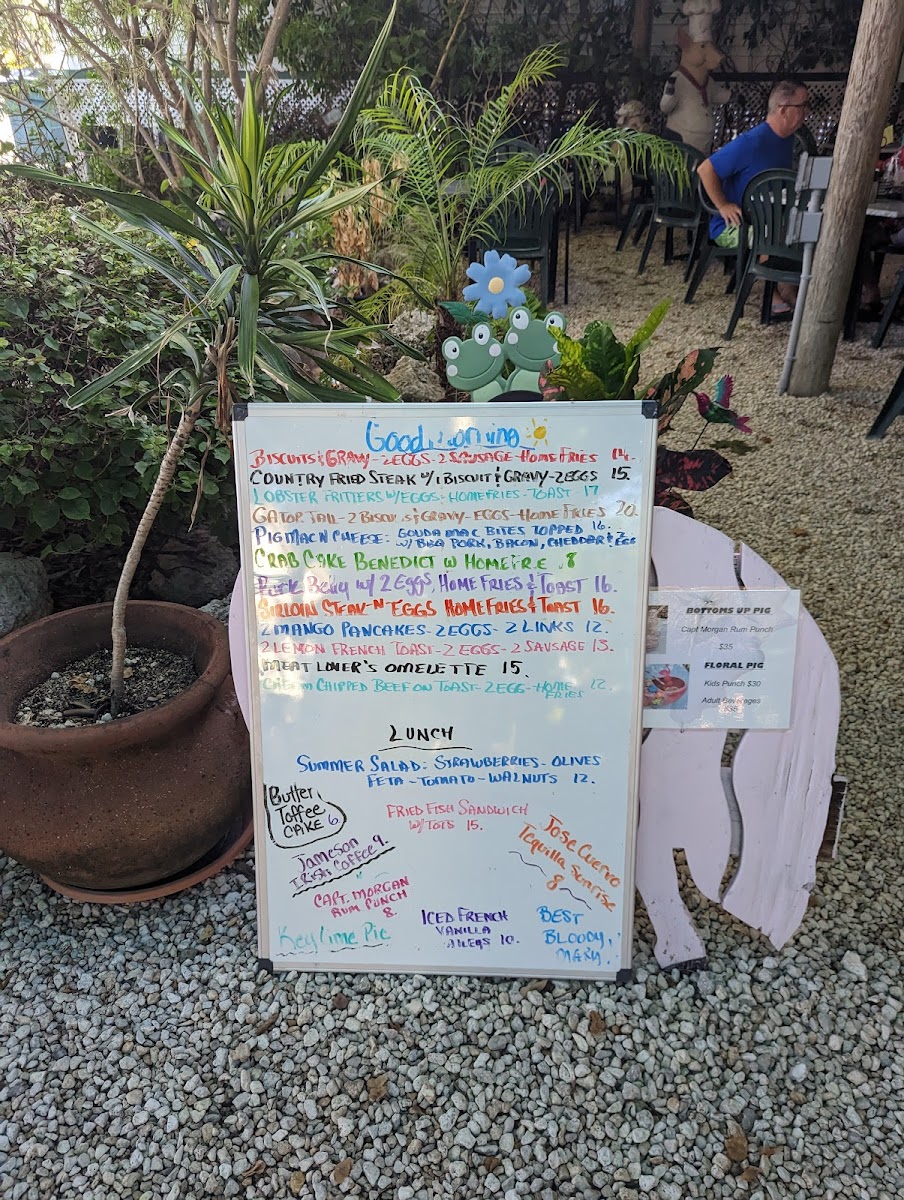 Good Morning
BISCUITS & GRAVY - 2 EGGS - 2 SAUSAGE - HOME FRIES 14.
COUNTRY FRIED STEAK W/ 1 BISCUIT & GRAVY - 2 EGGS 15.
LOBSTER FRITTERS W/ EGGS - HOMEFRIES - TOAST - 17
GATOR TAIL - 2 BISCUITS & GRAVY - EGGS - HOME FRIES 20.
PIG MAC N CHEESE: GOUDA MAC BITES TOPPED 16.
W/ BBQ PORK, BACON, CHEDDAR & 2 EGG
CRAB CAKE BENEDICT W HOMEFRIE 18
Pork Belly W/ 2 EGGS, HOME FRIES & TOAST 16.
SIRLOIN STEAK - N - EGGS HOME FRIES & TOAST 16.
2 MANGO PANCAKES - 2 EGGS - 2 LINKS 12.
2 LEMON FRENCH TOAST - 2 EGGS - 2 SAUSAGE 13.
MEAT LOVER'S OMELETTE 15.
CHIPPED BEEF ON TOAST - 2 EGG - HOME 12.
FRIES
LUNCH
SUMMER SALAD: STRAWBERRIES - OLIVES
FETA - TOMATO - WALNUTS 12.
Butter
Toffee
CAKE 6
FRIED FISH SANDWICH
W/ TOTS 15.
Jameson
IRISH COFFEE 9.
Jose Cuervo
Tequilla Sunrise
8
CAPT. MORGAN
RUM PUNCH
8.
Key Lime Pie
ICED FRENCH
VANILLA
10.
BEST
BLOODY
MARY.
BOTTOMS UP PIG
Capt Morgan Rum Punch
$35
FLORAL PIG
Kids Punch $30
Adult Beverages
$35